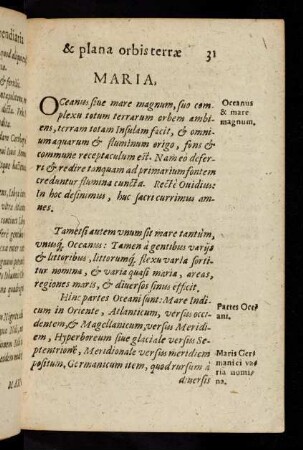 & plana orbis terræ 31
MARIA.
OCeanus siue mare magnum, suo com
plexu totum terrarum orbem ambi
ens, terram totam Insulam facit, & omni
um aquarum & fluminum origo, fons &
commune receptaculum est. Nam eo defer
ri & redire tanquam ad primarium fontem
creduntur flumina cuncta. Rectè Ouidius:
In hoc desinimus, huc sacri currimus am
nes.
Oceanus
& mare
magnum.
Tametsi autem unum sit mare tantum,
vnusq́; Oceanus: Tamen à gentibus varijs
& littoribus, littorumq́; flexu varia sorti
tur nomina, & varia quasi maria, areas,
regiones maris, & diuersos sinus efficit.
Hinc partes Oceani sunt: Mare Indic
um in Oriente, Atlanticum, versus occi
dentem, & Magellanicum, versus Meridi
em, Hyperboreum siue glaciale versus Se
ptentrionē, Meridionale versus meridiem
positum, Germanicum item, quod rursum à
diuersis
Partes Oce
ani.
Maris Ger
manici va
ria nomi
na.